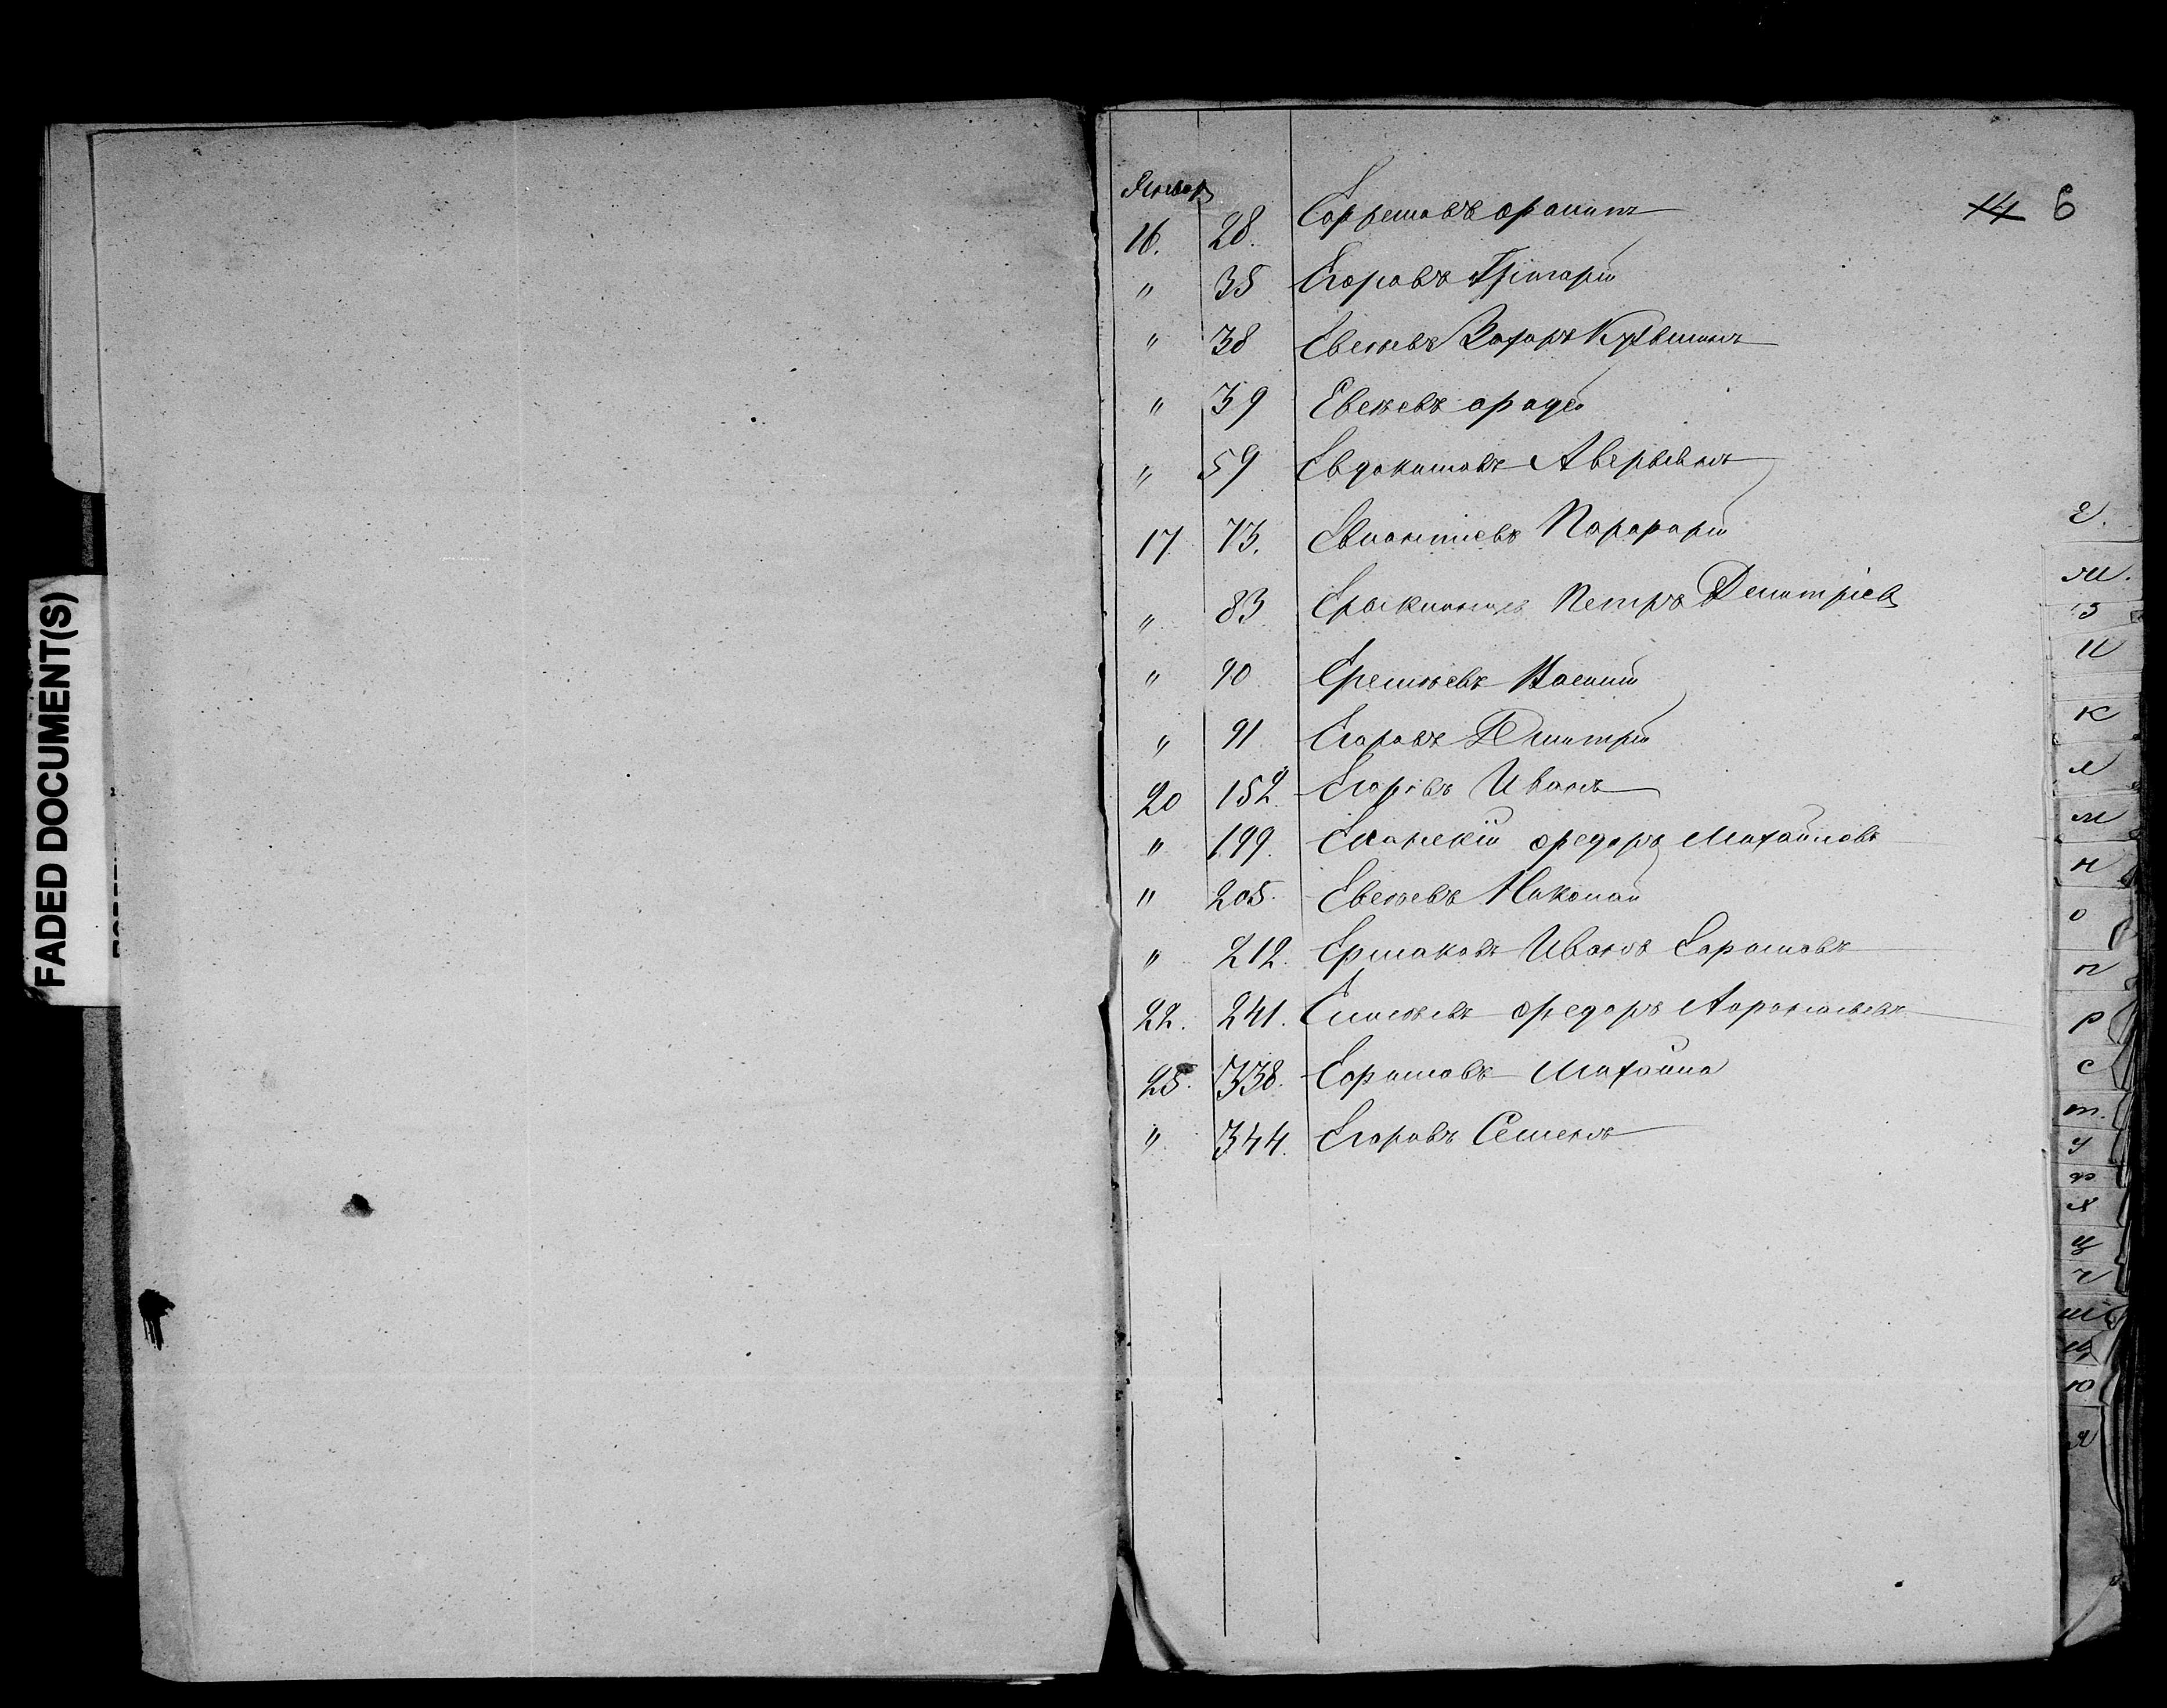 FADED DOCUMENT(S)
Январ
14 6
16. 28. Ефремовъ Филипъ
" 35 Егоровъ Григорий
" 38 Евсеевъ Захаръ Кузьминъ
" 39 Евсеевъ Фадей
" 59 Евдокимовъ Аверьянъ
17 73. Порфирий
" 83 Петръ Дмитриев
" 90 Еремеевъ Василий
" 91 Егоровъ Дмитрий
20 152. Егоровъ Иванъ
" 199. Федоръ Михайловъ
" 205. Евсеевъ Николай
" 212. Ермаковъ Иванъ Ефремовъ
22. 241. Елисеевъ Федоръ Афонасьевъ
25. 338. Ефимовъ Михаила
" 344. Егоровъ Семенъ
Е.
Ж.
З
И
К
Л
М
Н
О
П
Р
С
Т.
У
Ф
Х
Ц
Ч
Ш
Щ
Ю
Я